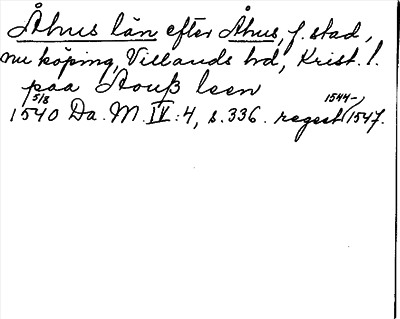 Åhus län efter Åhus, f. stad,
nu köping, Villands hd, Krist. l.
paa Aouß leen
5/8 1544-
1540 Da. M. IV:4, s. 336. regest 1547.